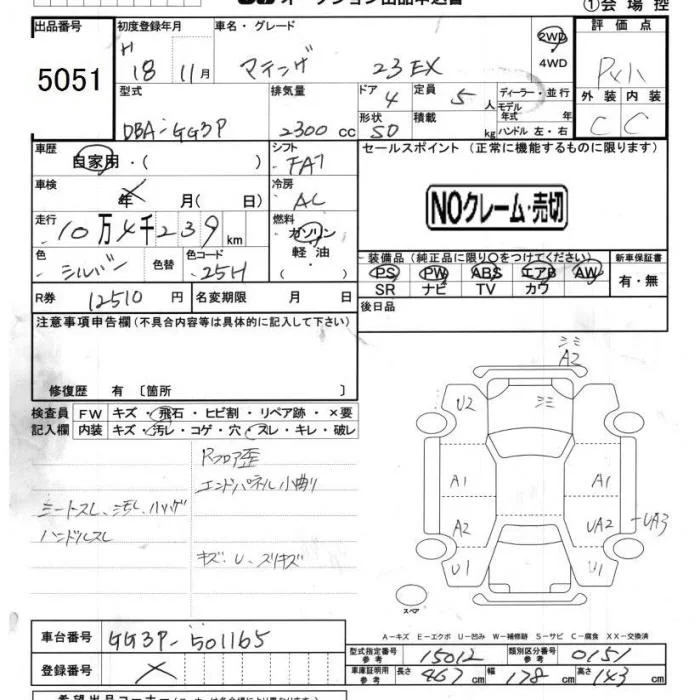 オークション出品申込書
①会場控
出品番号 初度登録年月 車名・グレード 評価点
5051
H 18 11月 アテンザ 23EX 2WD 4WD
型式 排気量 ドア 定員 ディーラー・並行 外装 内装
DBA-GG3P 2300cc 4 5人 モデル年式 年 C C
形状 SD 積載 kg ハンドル 左・右
車歴 シフト セールスポイント (正常に機能するものに限ります)
自家用・( ) FAT
車検 冷房
年 月(日) AC
NOクレーム・売切
走行 燃料
10万4千239km ガソリン 軽・油
色 色替 色コード 装備品 (純正品に限り○をつけてください) 新車保証書
シルバー 25H PS PW ABS エアB AW 有・無
SR ナビ TV カワ
R券 12510円 名変期限 月 日 後日品
注意事項申告欄 (不具合内容等は具体的に記入して下さい)
修復歴 有 〔箇所 〕
検査員 FW キズ・飛石・ヒビ割・リペア跡・×要
記入欄 内装 キズ・汚レ・コゲ・穴・スレ・キレ・破レ
Rフロア歪
エンドパネル小曲り
シートスレ、汚レ、ハゲ
ハンドルスレ
キズ・U・スリキズ
ミミ
A2
U2 ミミ
A1 A1
A2 UA2 -UA3
U1 U1
スペア
A-キズ E-エクボ U-凹み W-補修跡 S-サビ C-腐食 XX-交換済
車台番号 GG3P-501165
型式指定番号 参考 15012 類別区分番号 参考 0151
登録番号 車庫証明用 参考 長さ 467cm 幅 178cm 高さ 143cm